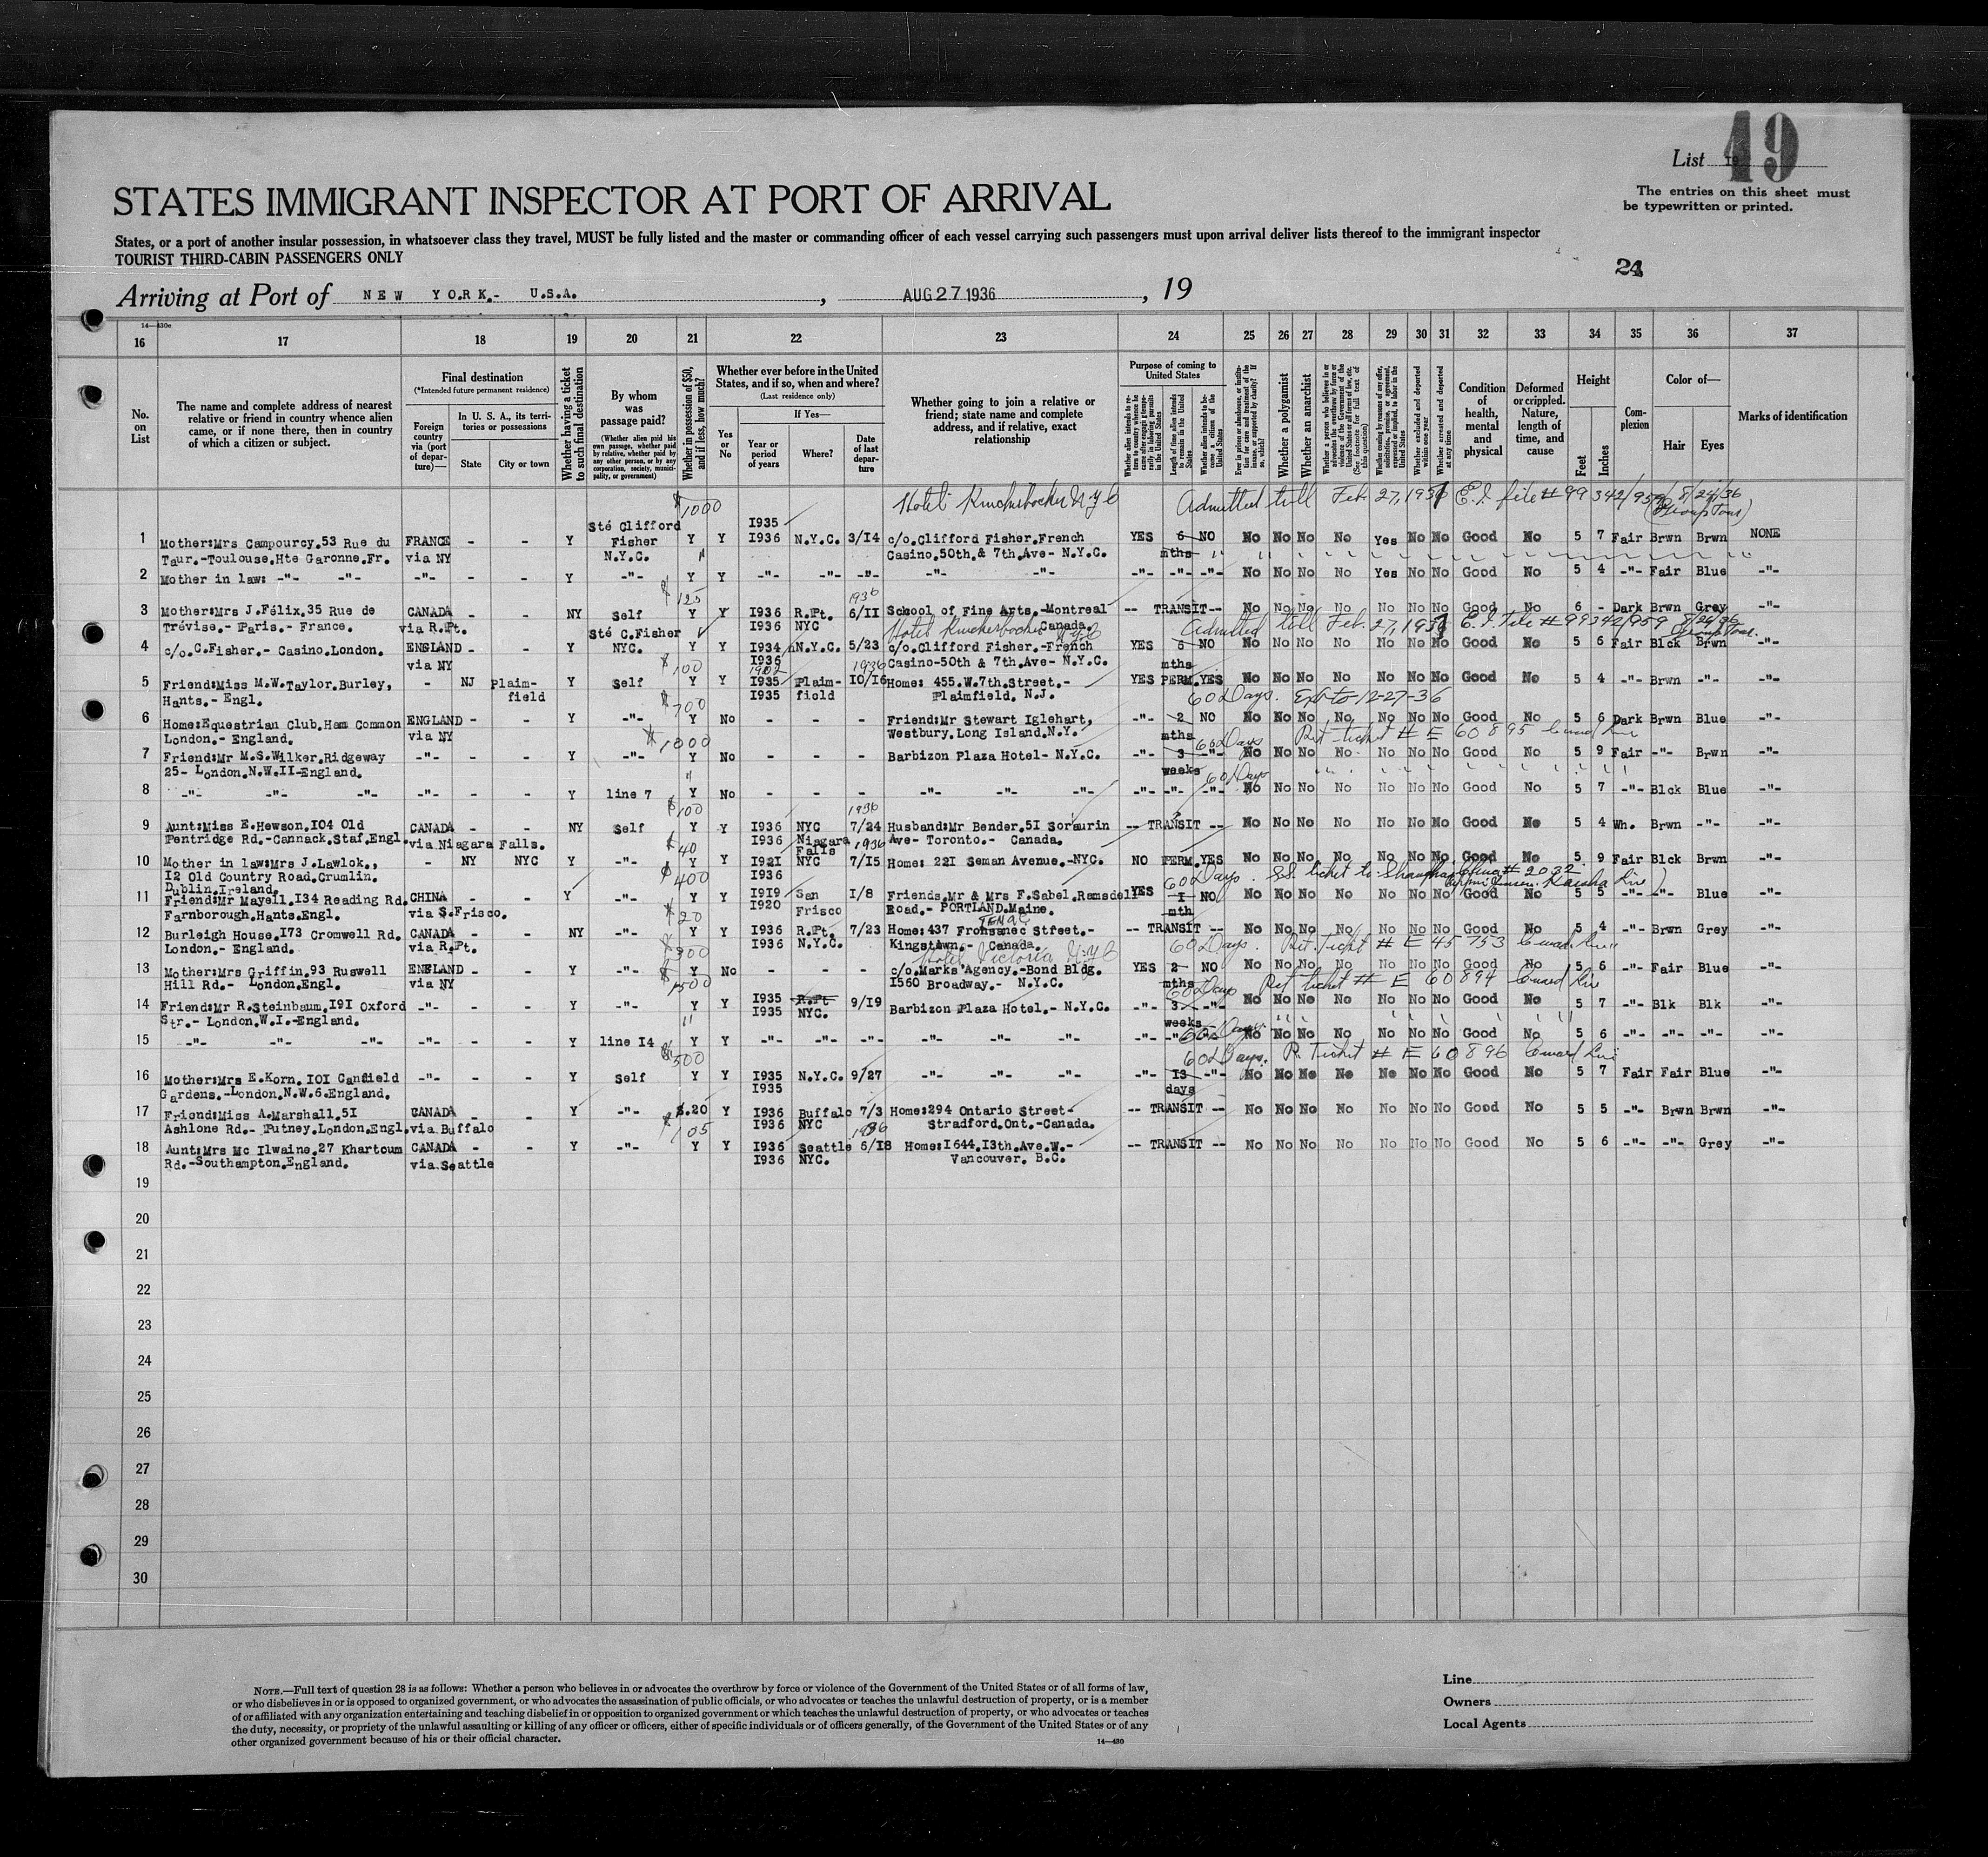 List 19
49
The entries on this sheet must
be typewritten or printed.
STATES IMMIGRANT INSPECTOR AT PORT OF ARRIVAL
States, or a port of another insular possession, in whatsoever class they travel, MUST be fully listed and the master or commanding officer of each vessel carrying such passengers must upon arrival deliver lists thereof to the immigrant inspector
TOURIST THIRD-CABIN PASSENGERS ONLY
Arriving at Port of NEW YORK.- U.S.A. , AUG 27 1936 , 19
14—430e
16 17 18 19 20 21 22 23 24 25 26 27 28 29 30 31 32 33 34 35 36 37
No. on List
The name and complete address of nearest relative or friend in country whence alien came, or if none there, then in country of which a citizen or subject.
Final destination
(*Intended future permanent residence)
Foreign country via (port of departure)—
In U. S. A., its territories or possessions
State
City or town
Whether having a ticket to such final destination
By whom was passage paid?
(Whether alien paid his own passage, whether paid by relative, whether paid by any other person, or by any corporation, society, municipality, or government)
Whether in possession of $50, and if less, how much?
Whether ever before in the United States, and if so, when and where?
(Last residence only)
Yes or No
If Yes—
Year or period of years
Where?
Date of last departure
Whether going to join a relative or friend; state name and complete address, and if relative, exact relationship
Purpose of coming to United States
Length of time alien intends to remain in the United States
Whether alien intends to become a citizen of the United States
Whether a polygamist
Whether an anarchist
Whether excluded and deported within one year
Whether arrested and deported at any time
Condition of health, mental and physical
Deformed or crippled. Nature, length of time, and cause
Height
Feet
Inches
Complexion
Color of—
Hair
Eyes
Marks of identification
$1000 Admitted till Feb. 27, 1937
1 Mother:Mrs Campourcy.53 Rue du FRANCE - - Y Sté Clifford Fisher Y Y I935 I936 N.Y.C. 3/14 c/o.Clifford Fisher.French YES 6 NO No No No No Yes No No Good No 5 7 Fair Brwn Brwn NONE
Taur.-Toulouse.Hte Garonne.Fr. via NY N.Y.C. Casino.50th.& 7th.Ave- N.Y.C. mths
2 Mother in law: -"- -"- -"- - - Y -"- Y Y -"- -"- -"- -"- -"- -"- -"- -"- No No No No Yes No No Good No 5 4 -"- Fair Blue -"-
$125 1936
3 Mother:Mrs J.Félix.35 Rue de CANADA - - NY Self Y Y I936 R.Pt. 6/II School of Fine Arts.-Montreal -- TRANSIT -- No No No No No No No Good No 6 - Dark Brwn Grey -"-
Trévise.- Paris.- France. via R.Pt. I936 NYC Canada.
Admitted till Feb. 27, 1937
4 c/o.C.Fisher.- Casino.London. ENGLAND - - Y Sté C.Fisher NYC. Y Y I934 N.Y.C. 5/23 c/o.Clifford Fisher.-French YES 6 NO No No No No No No No Good No 5 6 Fair Blck Brwn -"-
via NY I936 Casino-50th & 7th.Ave- N.Y.C. mths
$100 1902 1936
5 Friend:Miss M.W.Taylor.Burley, - NJ Plain- Y Self Y Y I935 Plain- IO/I6 Home: 455.W.7th.Street.- YES PERM. YES No No No No No No No Good No 5 4 -"- Brwn -"- -"-
Hants.- Engl. field I935 field Plainfield, N.J.
$700 60 Days. Ext to 12-27-36
6 Home:Equestrian Club.Ham Common ENGLAND - - Y -"- Y No - - - Friend:Mr Stewart Iglehart, -"- 2 NO No No No No No No No Good No 5 6 Dark Brwn Blue -"-
London.- England. via NY Westbury.Long Island.N.Y. mths
$1000 60 Days Ret ticket # E 60895 Cunard Line
7 Friend:Mr M.S.Wilker.Ridgeway -"- - - Y -"- Y No - - - Barbizon Plaza Hotel- N.Y.C. -"- 3 -"- No No No No No No No Good No 5 9 Fair -"- Brwn -"-
25- London.N.W.II-England. weeks
60 Days
8 -"- -"- -"- -"- - - Y line 7 Y No - - - -"- -"- -"- -"- -"- -"- No No No No No No No Good No 5 7 -"- Blck Blue -"-
$100 1936
9 Aunt:Miss E.Hewson.I04 Old CANADA - - NY Self Y Y I936 NYC 7/24 Husband:Mr Bender.5I Soraurin -- TRANSIT -- No No No No No No No Good No 5 4 Wh. Brwn -"- -"-
Pentridge Rd.-Cannack.Staf.Engl. via Niagara Falls. I936 Niagara Falls Ave- Toronto.- Canada.
$40 1936
10 Mother in law:Mrs J.Lawlok., - NY NYC Y -"- Y Y I92I NYC 7/I5 Home: 22I Seman Avenue.-NYC. NO PERM. YES No No No No No No No Good No 5 9 Fair Blck Brwn -"-
I2 Old Country Road.Crumlin. I936
Dublin.Ireland.
$400 60 Days. SS. ticket to Shanghai
11 Friend:Mr Mayell.I34 Reading Rd. CHINA - - Y -"- Y Y I9I9 San I/8 Friends.Mr & Mrs F.Sabel.Ramsdell YES I NO No No No No No No No Good No 5 5 -"- -"- Blue -"-
Farnborough.Hants.Engl. via S.Frisco. I920 Frisco Road.- PORTLAND.Maine. mth
$20
12 Burleigh House.I73 Cromwell Rd. CANADA - - NY -"- Y Y I936 R.Pt. 7/23 Home:437 Fronsanec Street.- -- TRANSIT -- No No No No No No No Good No 5 4 -"- Brwn Grey -"-
London.- England. via R.Pt. I936 N.Y.C. Kingstown.- Canada.
$300 Hotel Victoria N.Y.C 60 Days. Ret. Ticket # E 45753 Cunard Line
13 Mother:Mrs Griffin.93 Ruswell ENGLAND - - Y -"- Y No - - - c/o.Marks'Agency.-Bond Bldg. YES 2 NO No No No No No No No Good No 5 6 -"- Fair Blue -"-
Hill Rd.- London.Engl. via NY I560 Broadway.- N.Y.C. mths
$1500 60 Days Ret ticket # E 60894 Cunard Line
14 Friend:Mr R.Steinbaum.I9I Oxford -"- - - Y -"- Y Y I935 R.Pt 9/I9 Barbizon Plaza Hotel.- N.Y.C. -"- 3 -"- No No No No No No No Good No 5 7 -"- Blk Blk -"-
Str.- London.W.I.-England. I935 NYC. weeks
60 Days
15 -"- -"- -"- -"- - - Y line I4 Y Y -"- -"- -"- -"- -"- -"- -"- -"- No No No No No No No Good No 5 6 -"- -"- -"- -"-
$500 60 Days. R. Ticket # E 60896 Cunard Line
16 Mother:Mrs E.Korn.IOI Canfield -"- - - Y Self Y Y I935 N.Y.C. 9/27 -"- -"- -"- -"- I3 -"- No No No No No No No Good No 5 7 Fair Fair Blue -"-
Gardens.-London.N.W.6.England. I935 days
17 Friend:Miss A.Marshall.5I CANADA - - Y -"- $.20 Y I936 Buffalo 7/3 Home:294 Ontario Street- -- TRANSIT -- No No No No No No No Good No 5 5 -"- Brwn Brwn -"-
Ashlone Rd.- Putney.London.Engl. via Buffalo I936 NYC Stradford.Ont.-Canada.
$105 1936
18 Aunt:Mrs Mc Ilwaine.27 Khartoum CANADA - - Y -"- Y Y I936 Seattle 6/I8 Home:I644.I3th.Ave.W.- -- TRANSIT -- No No No No No No No Good No 5 6 -"- -"- Grey -"-
Rd.-Southampton.England. via Seattle I936 NYC. Vancouver. B.C.
19
20
21
22
23
24
25
26
27
28
29
30
NOTE.—Full text of question 28 is as follows: Whether a person who believes in or advocates the overthrow by force or violence of the Government of the United States or of all forms of law,
or who disbelieves in or is opposed to organized government, or who advocates the assassination of public officials, or who advocates or teaches the unlawful destruction of property, or is a member
of or affiliated with any organization entertaining and teaching disbelief in or opposition to organized government or which teaches the unlawful destruction of property, or who advocates or teaches
the duty, necessity, or propriety of the unlawful assaulting or killing of any officer or officers, either of specific individuals or of officers generally, of the Government of the United States or of any
other organized government because of his or their official character.
14—430
Line
Owners
Local Agents